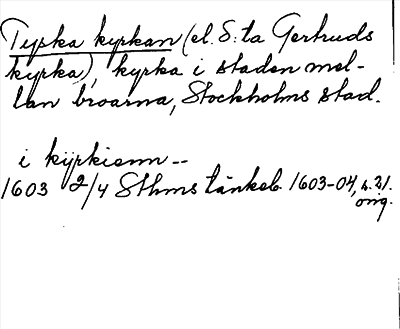 Tyska kyrkan (el. S:ta Gertruds
kyrka), kyrka i staden mel-
lan broarna, Stockholms stad.
i kyrkienn --
1603 2/4 Sthms tänkeb. 1603-04, s. 21.
orig.